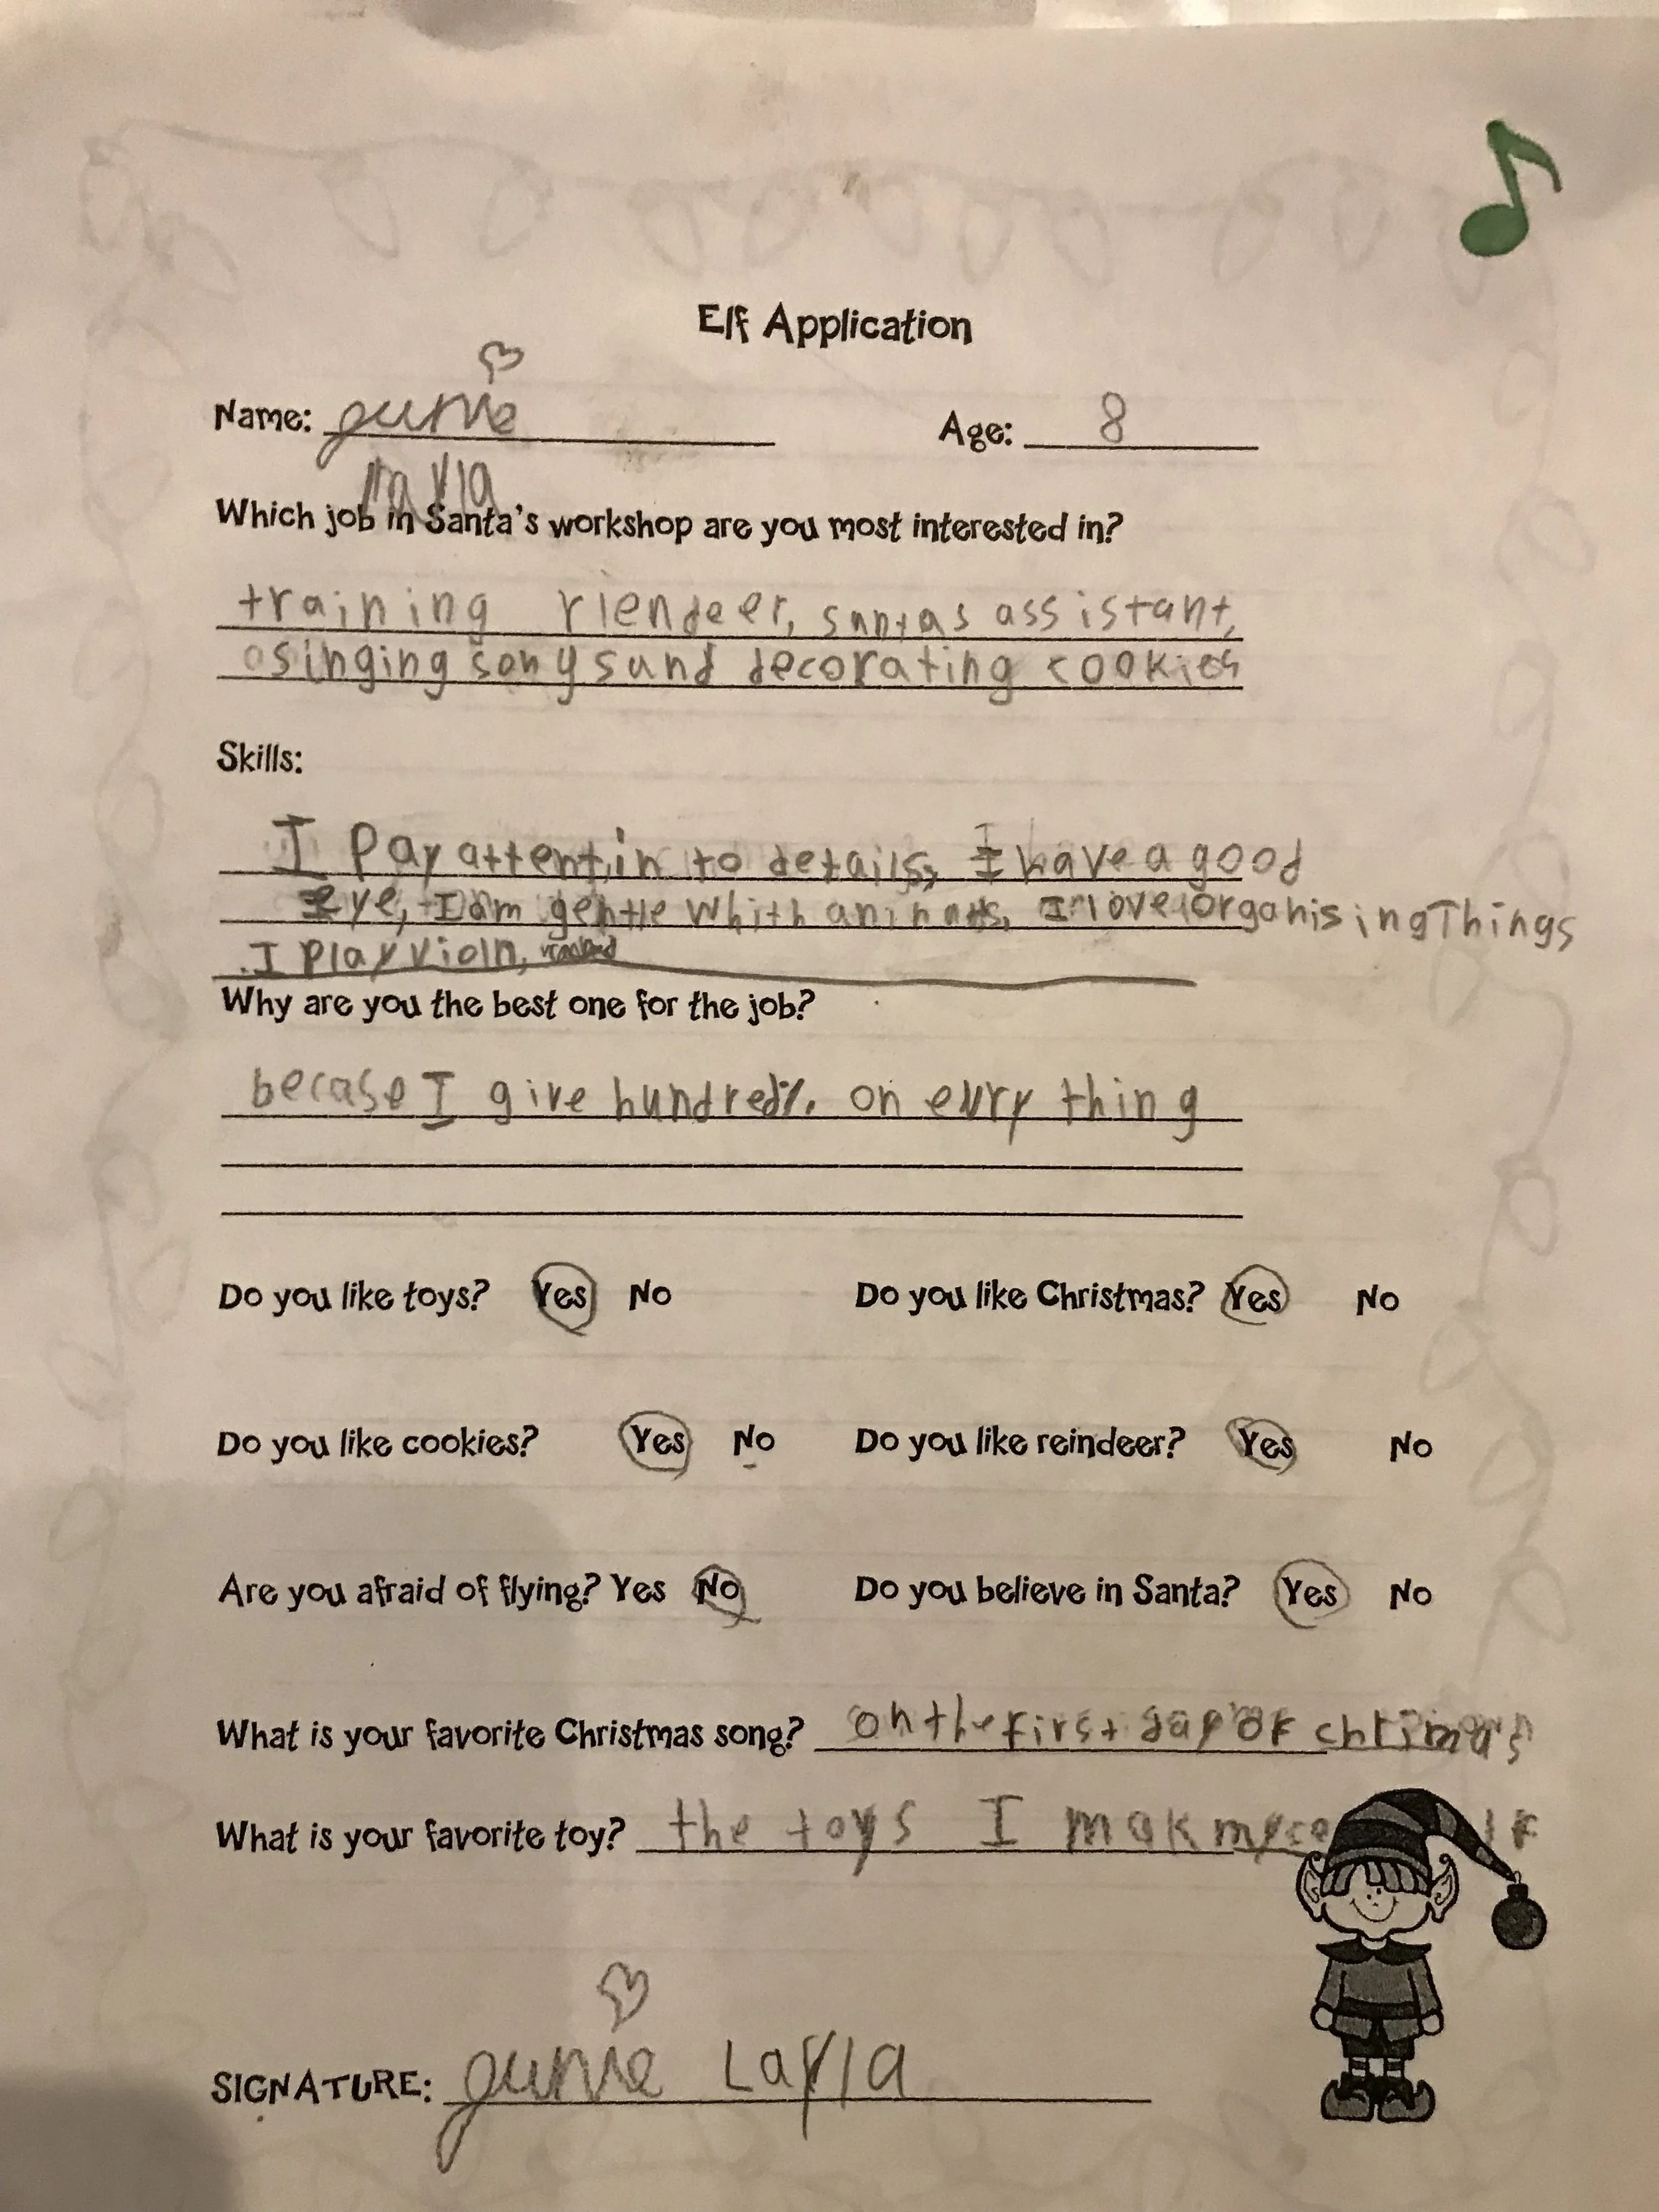 Elf Application
Name: Age: 8
Layla
Which job in Santa's workshop are you most interested in?
training riendeer, santas assistant,
singing songs and decorating cookies
Skills:
I Pay attentin to details, I have a good
eye, I am gentle whith animals, I love organising Things
I play violn,
Why are you the best one for the job?
becase I give hundred%. on evry thing
Do you like toys? Yes No Do you like Christmas? Yes No
Do you like cookies? Yes No Do you like reindeer? Yes No
Are you afraid of flying? Yes No Do you believe in Santa? Yes No
What is your favorite Christmas song? on the first day of chrimas
What is your favorite toy? the toys I mak myce lf
SIGNATURE: Layla